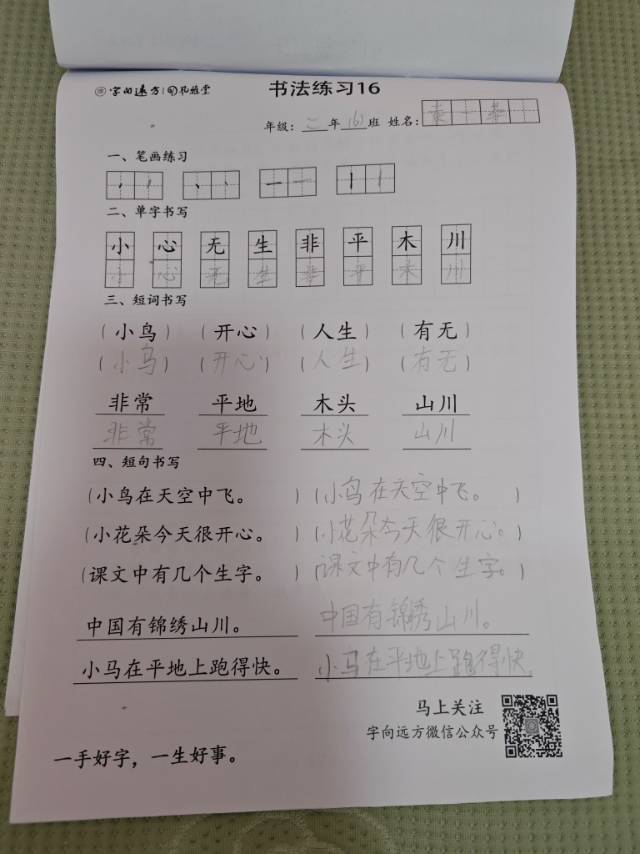 字向远方
书法练习16
年级：二年(6)班 姓名：
一、笔画练习
二、单字书写
小 心 无 生 非 平 木 川
小 心 无 生 非 平 木 川
三、短词书写
(小鸟) (开心) (人生) (有无)
(小鸟) (开心) (人生) (有无)
非常 平地 木头 山川
非常 平地 木头 山川
四、短句书写
(小鸟在天空中飞。) (小鸟在天空中飞。)
(小花朵今天很开心。) (小花朵今天很开心。)
(课文中有几个生字。) (课文中有几个生字。)
中国有锦绣山川。 中国有锦绣山川。
小马在平地上跑得快。 小马在平地上跑得快
马上关注
字向远方微信公众号
一手好字，一生好事。